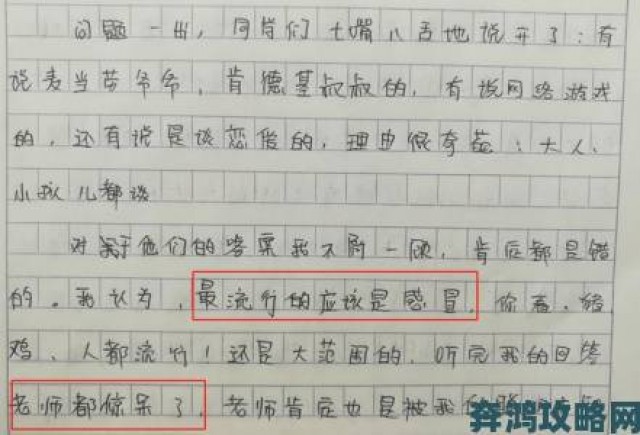 问题一出，同学们七嘴八舌地说开了：有
说麦当劳爷爷，肯德基叔叔的，有说网络游戏
的，还有说是谈恋爱的，理由很奇葩：大人、
小孩儿都谈
对于他们的答案我不屑一顾，肯定都是错
的。我认为，最流行的应该是感冒，你看，猪
鸡、人都流行！还是大范围的，听完我的回答
老师都惊呆了，老师肯定也是被我
奔鸿攻略网